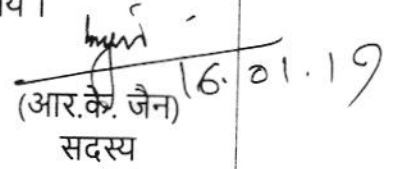 16.01.19
(आर.के. जैन)
सदस्य